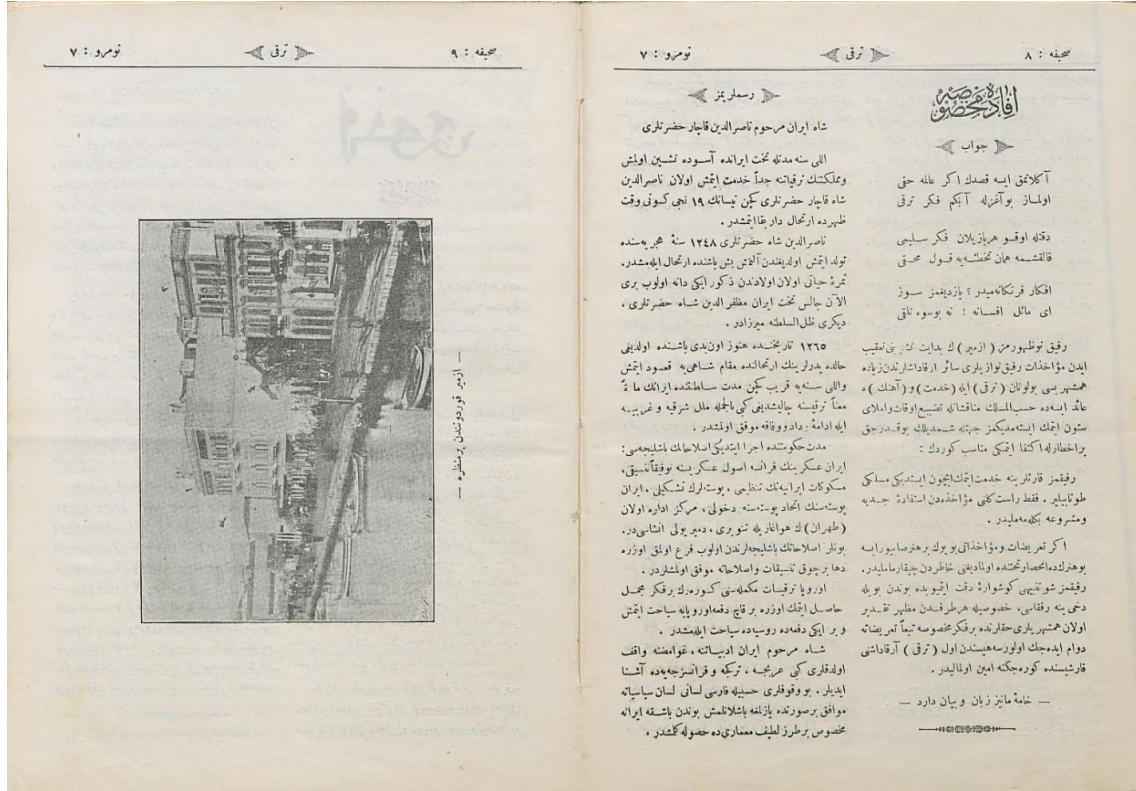 صحیفه : ۸
ترقی
نومرو : ۷
افاده مخصوصه
جواب
آکلاتمق ایسه قصدك اکر عالمه حقی
اولماز بو آغزله آبکم فکر ترقی
دقتله اوقو هر یازیلان فکر سلیمی
قالقشمه همان تخطئه‌یه قول محقی
افکار فرنکانه‌میدر ؟ یازدیغمز سوز
ای مائل افسانه ! نه بوسوه تاقی
رفیق نوظهورمز ( ازمیر ) ك بدایت نشرینی تعقیب
ایدن مؤاخذات رفیق نوازیلری سائر ارقداشلرندن زیاده
همشهریسی بولونان ( ترقی ) ایله ( خدمت ) و ( آهنك ) ه
عائد ایسه‌ده حسب‌المسلك مناقشاتله تضییع اوقات و املای
ستون ایتمك ایسته‌مدیکمز جهتله شمدیلك بوقدرجق
بر اخطار له اکتفا ایتمکی مناسب کوردك :
رفیقمز قارئلرینه خدمت ایتمك ایچون ایستدیکی مسلکی
طوتابیلیر . فقط راست کلنی مؤاخذه‌دن استفادهٔ جدیه
ومشروعه بکله‌مه‌ملیدر .
اکر تعریضات و مؤاخذاتی بویوك بر هنر صاییور ایسه
بو هنرك‌ده انحصار تحتنده اولمادیغنی خاطردن چیقارمامالیدر.
رفیقمز شو تنبیهی کوشوارهٔ دقت ایتمیوبده بوندن بویله
دخی ینه رفقاسی، خصوصیله هر طرفدن مظهر تقدیر
اولان همشهریلری حقلرنده بر فکر مخصوصه تبعاً تعریضاته
دوام ایده‌جك اولورسه هپسندن اول ( ترقی ) آرقداشنی
قارشیسنده کوره‌جکنه امین اولمالیدر .
— خامهٔ مانیز زبان و بیان دارد —
رسملریمز
شاه ایران مرحوم ناصرالدین قاچار حضرتلری
اللی سنه مدتله تخت ایرانده آسوده نشین اولمش
ومملکتنك ترقیاتنه جداً خدمت ایتمش اولان ناصرالدین
شاه قاچار حضرتلری کچن نیسانك ۱۹ نجی کونی وقت
ظهرده ارتحال دار بقا ایتمشدر .
ناصرالدین شاه حضرتلری ۱۲۴۸ سنهٔ هجریه‌سنده
تولد ایتمش اولدیغندن آلتمش بش یاشنده ارتحال ایله‌مشدر.
ثمرهٔ حیاتی اولان اولادندن ذکور ایکی دانه اولوب بری
الآن جالس تخت ایران مظفر الدین شاه حضرتلری ،
دیکری ظل‌السلطنه میرزادر .
۱۲٦٥ تاریخنده هنوز اون‌یدی یاشنده اولدیغی
حالده پدرلرینك ارتحالنده مقام شاهی‌یه قعود ایتمش
واللی سنه‌یه قریب کچن مدت سلطنتنده ایرانك مادةً
معناً ترقیسنه چالیشدیغی کبی بالجمله ملل شرقیه و غربیه
ایله ادامهٔ وداد و وفاقه موفق اولمشدر .
مدت حکومتنده اجرا ایتدیکی اصلاحاتك باشلیجه‌سی:
ایران عسکرینك فرانسه اصول عسکریسنه توفیقاً تنسیقی،
مسکوکات ایرانیه‌نك تنظیمی ، پوسته‌لرك تشکیلی ، ایران
پوسته‌سنك اتحاد پوسته‌سنه دخولی ، مرکز اداره اولان
( طهران ) ك هوا غازیله تنویری ، دمیر یولی انشاسی‌در .
بونلر اصلاحاتك باشلیجه‌لرندن اولوب فرع اولمق اوزره
دها بر چوق تنسیقات واصلاحاته موفق اولمشلردر .
اوروپا ترقیات مکمله‌سنی کوره‌رك بر فکر مجمل
حاصل ایتمك اوزره بر قاچ دفعه اوروپایه سیاحت ایتمش
و بر ایکی دفعه‌ده روسیاده سیاحت ایله‌مشدر .
شاه مرحوم ایران ادبیاتنه ، غوامضنه واقف
اولدقلری کبی عربجه ، ترکجه و فرانسزجه‌یه‌ده آشنا
ایدیلر . بو وقوفلری حسبیله فارسی لسانی لسان سیاسیاته
موافق بر صورتده یازلمغه باشلانلمش بوندن باشقه ایرانه
مخصوص بر طرز لطیف معماری‌ده حصوله کلمشدر .
صحیفه : ۹
ترقی
نومرو : ۷
— ازمیر قوردونندن بر منظره —